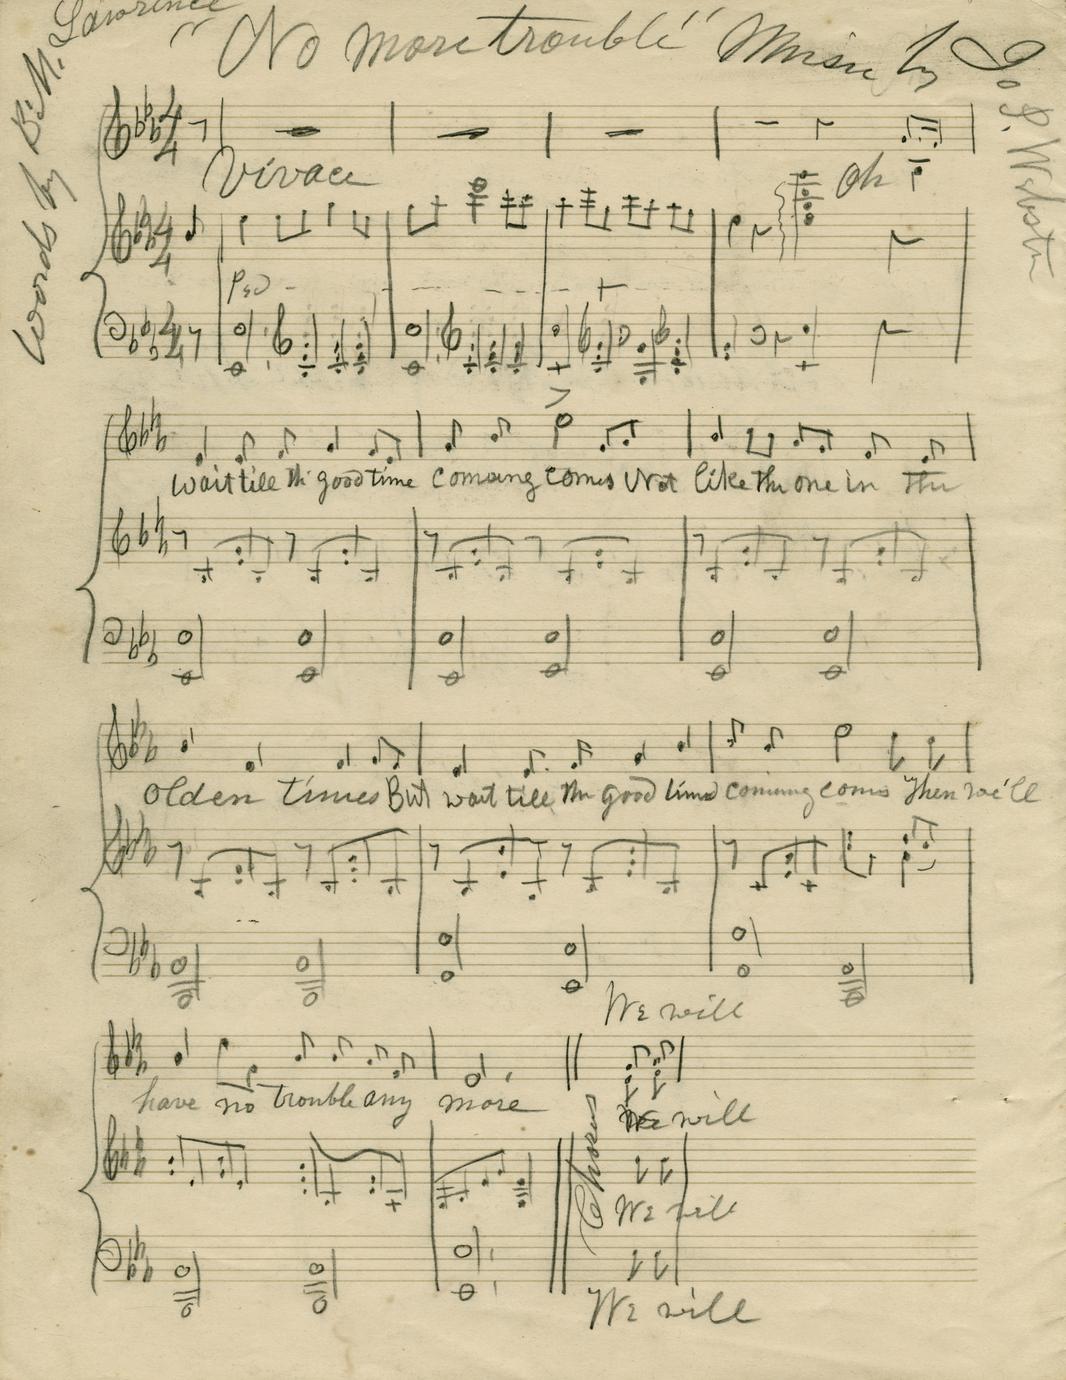 "No more trouble" Music by Jo P. Webster
Words by B. M. Lawrence
Vivace
Oh
Ped
wait till th' good time coming comes Not like the one in The
olden times But wait till the good time coming comes Then we'll
We will
have no trouble any more
We will
Chorus
We will
We will